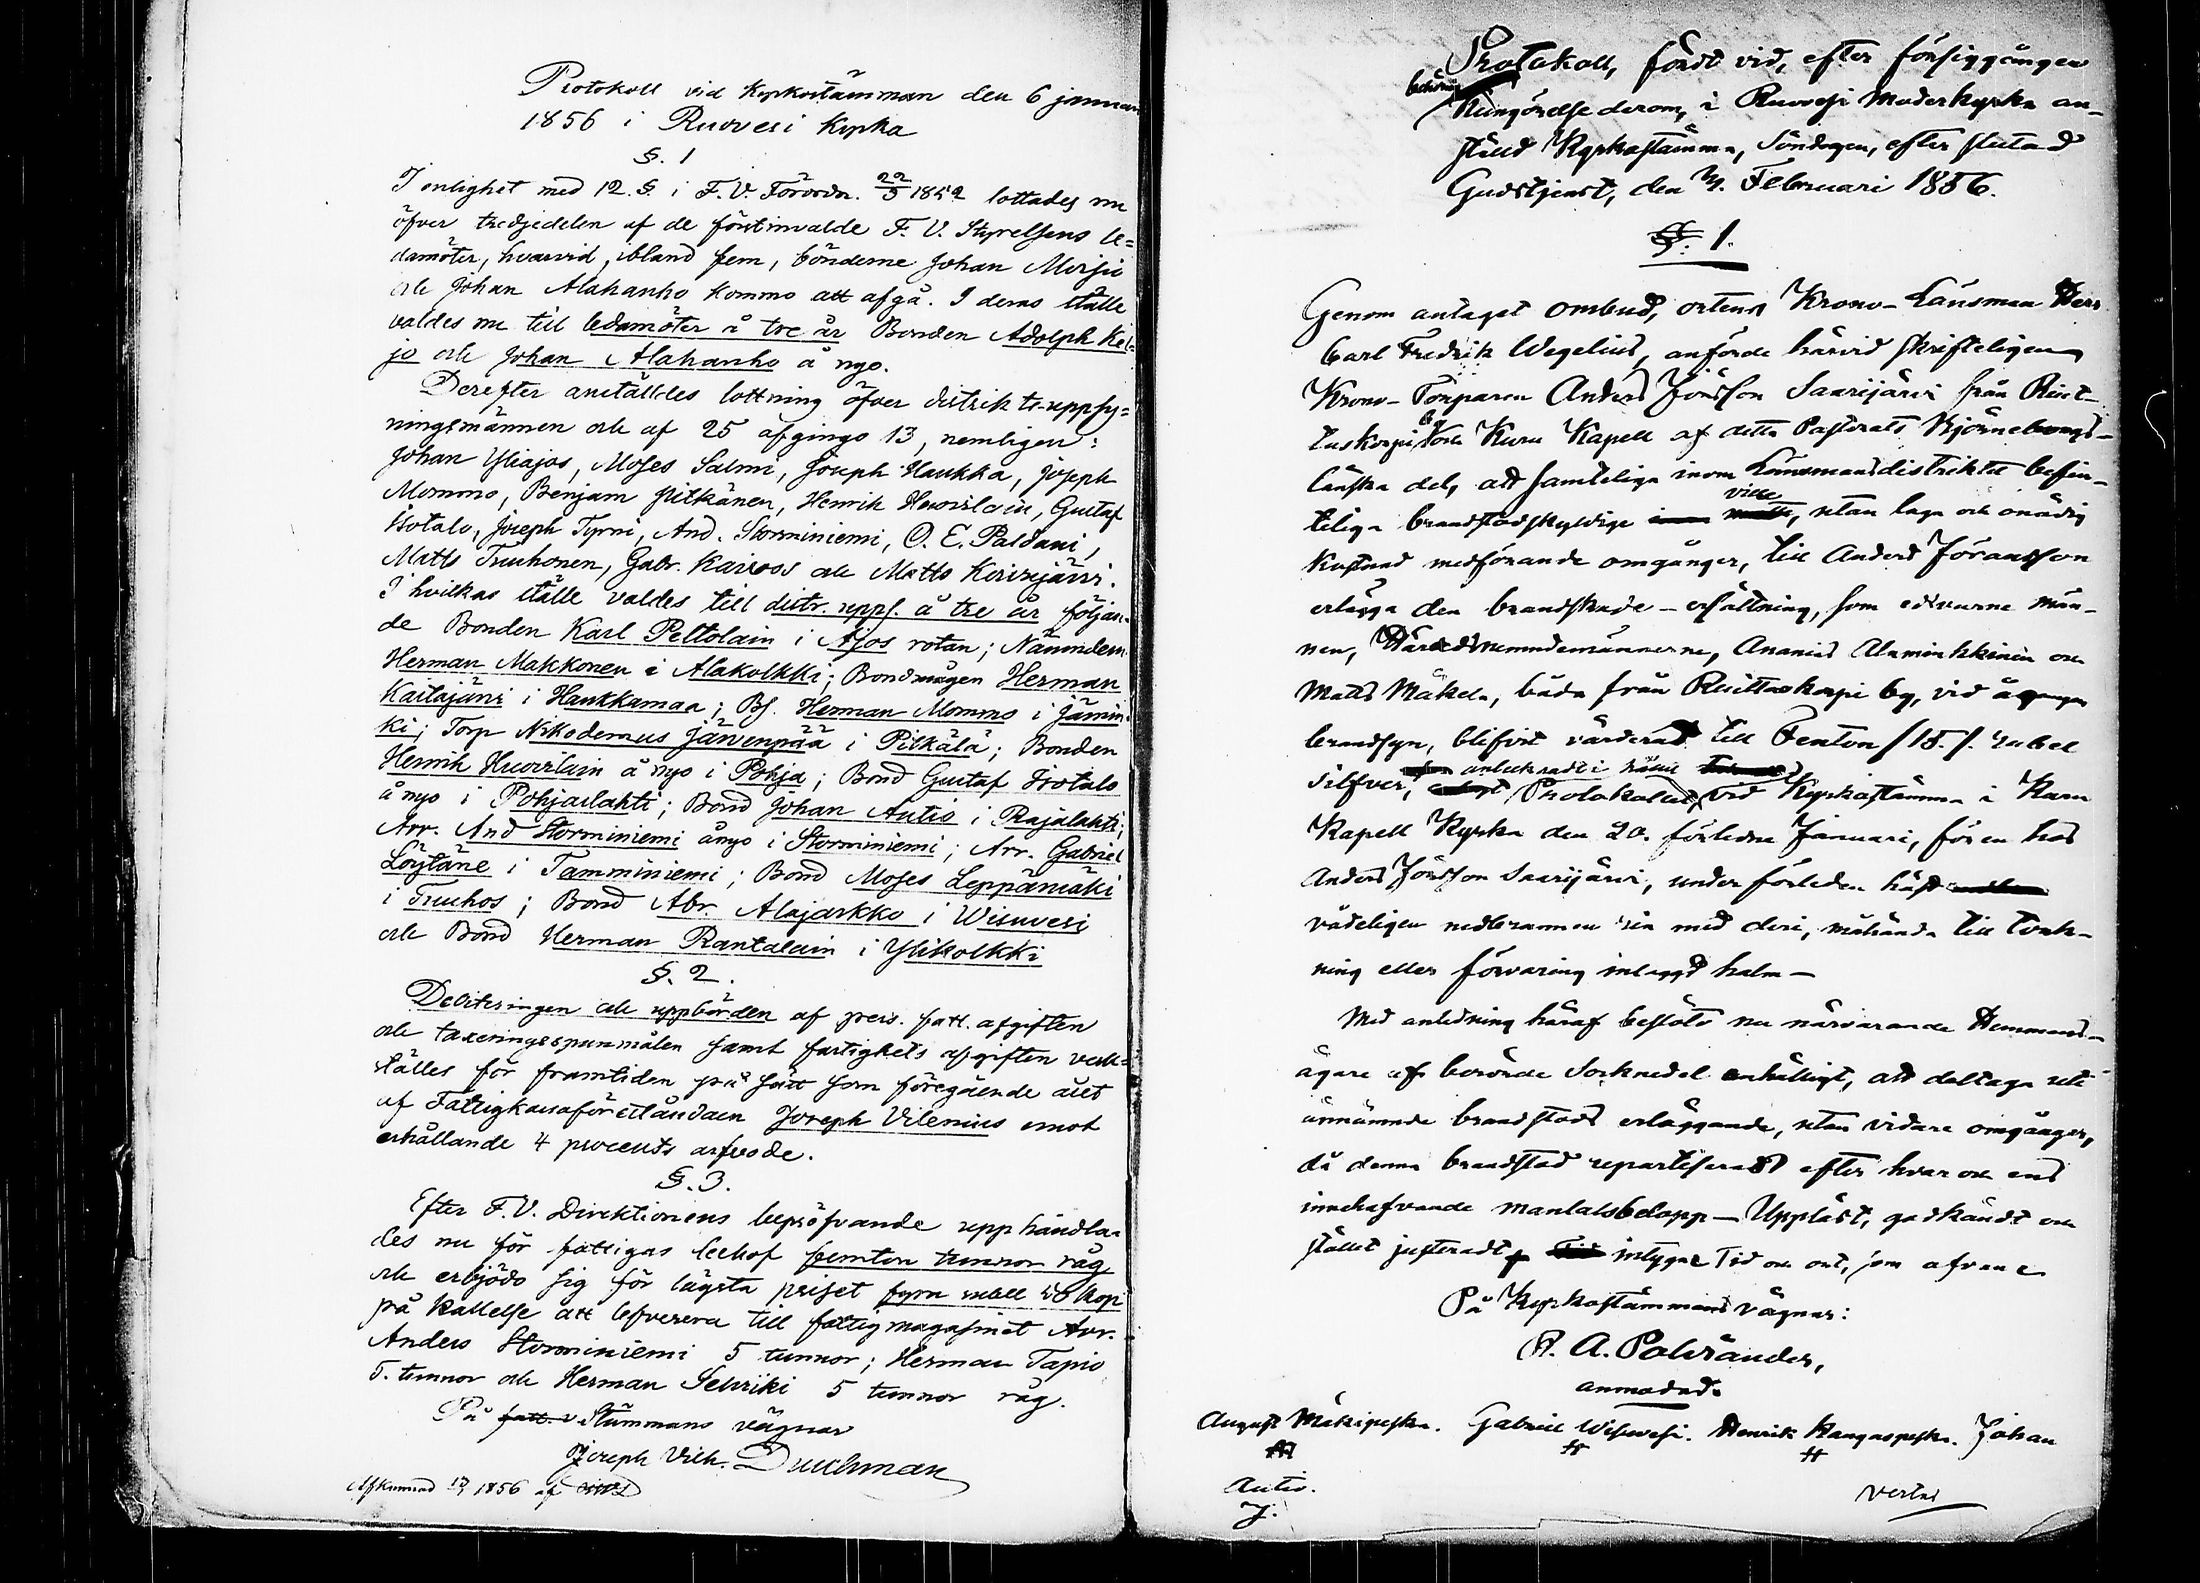 Protokoll vid Kyrkostämman den 6 januari
1856 i Ruovesi Kyrka
§. 1
I enlighet med 12. §. i F. V. Förordn. 22/3 1852 lottades nu
öfver tredjedelen af de förstinvalde F. V. Styrelsens le=
damöter, hvarvid, ibland fem, bönderne Johan
och Johan Alahanho kommo att afgå. I deras ställe
valdes nu till ledamöter å tre år Bonden Adolph Kei=
jo och Johan Alahanho å nyo.
Derefter anställdes lottning öfver distrikts-uppsy=
ningsmännen och af 25 afgingo 13, nemligen:
Johan Yliajos, Moses Salmi, Joseph Haukka, Joseph
Mommo, Benjam Pitkänen, Henrik Huovilain, Gustaf
Isotalo, Joseph Tyrni, And. Storminiemi, O. E. Paldani,
Matts Truuhonen, Gabr. Kaivoos och Matts Keivrijärvi.
I hvilkas ställe valdes till distr. upps. å tre år följan=
de Bonden Karl Peltolain i Ajos rotan; Nämndem.
Herman Makkonen i Alakolkki; Bondmågen Herman
Kaitajärvi i Haukkamaa; Bs. Herman Mommo i Jämin=
ki; Torp Nikodemus Järvenpää i Pitkälä; Bonden
Henrik Huovilain å nyo i Pohja; Bond Gustaf Isotalo
å nyo i Pohjaslahti; Bond Johan Autio i Rajalahti;
Arr. And Storminiemi ånyo i Storminiemi; Arr. Gabriel
Löytäne i Tamminiemi; Bond Moses Leppämäki
i Truuhos; Bond Abr. Alajarkko i Wisuvesi
och Bond Herman Rantalain i Ylikolkki
§. 2.
Debiteringen och uppbörden af pers. fatt. afgiften
och taxeringsspanmålen samt fastighets afgiften verk=
ställes för framtiden på sätt som föregående året
af Fattigkassaföreståndaren Joseph Vilenius emot
erhållande 4 procents arfvode.
§. 3.
Efter F. V. Direktionens bepröfvande upphandla=
des nu för fattigas behof femton tunnor råg
och erbjödo sig för lägsta priset fyra rubel 50 kop
på kallelse att lefverera till fattigmagasinet Arr.
Anders Storminiemi 5 tunnor; Herman Tapio
5. tunnor och Herman Sehriki 5 tunnor råg.
På fatt. v Stämmans vägnar
Joseph Vilh. Druchman
Afkunnad 1856 af
Protokoll, fördt vid, efter försiggången
behörig
Kungörelse derom, i Ruovesi Moderkyrka an-
ställd Kyrkostämma, Söndagen, efter slutad
Gudstjenst, den Februari 1856.
§. 1.
Genom antaget ombud, ortens Krono-Länsman Herr
Carl Fredrik Wegelius, anförde härvid skrifteligen
Krono-Torparen Anders Jönsson Saarijärvi från Riut-
taskorpi By och Kuru Kapell af detta Pastorats Björneborgs-
länska del, att samteliga inom Länsmansdistriktet befin-
ville
teliga brandstodskyldige, utan laga och onödig
kostnad medförande omgånger, till Anders Jöransson
erlägga den brandskade-ersättning, som edsvurne män-
nen, Häradsnämndemännerne, Ananias Alaminkkinin och
Matts Mäkelä, båda från Riuttaskorpi by, vid ågången
brandsyn, blifvit värderad till Femton /15./. rubel
anteknadt i hållit
Silfver, Protokollet, vid Kyrkostämma i Kuru
Kapell Kyrka den 20. förledne Januari, för en hos
Anders Jönsson Saarijärvi, under förleden höst
vådeligen nedbrunnen ria med deri, måhända till tork-
ning eller förvaring inlaggd halm —
Med anledning häraf beslöto nu närvarande Hemmans-
ägare af berörde Socknedel enhälligt, att deltaga uti
önämnde brandstods erläggande, utan vidare omgånger,
då denna brandstod repartiserats efter hvar och ens
innehafvande mantalsbelopp — Uppläst, godkändt och
stället justeradt, intygar Tid och ort, som ofvan e
På Kyrkostämmans vägnar:
A. A. Polviander,
anmodad.
August Mäkipeska. Gabriel Wisuvesi. Henrik Kangaspeska. Johan
Autio.
J.
Vertas